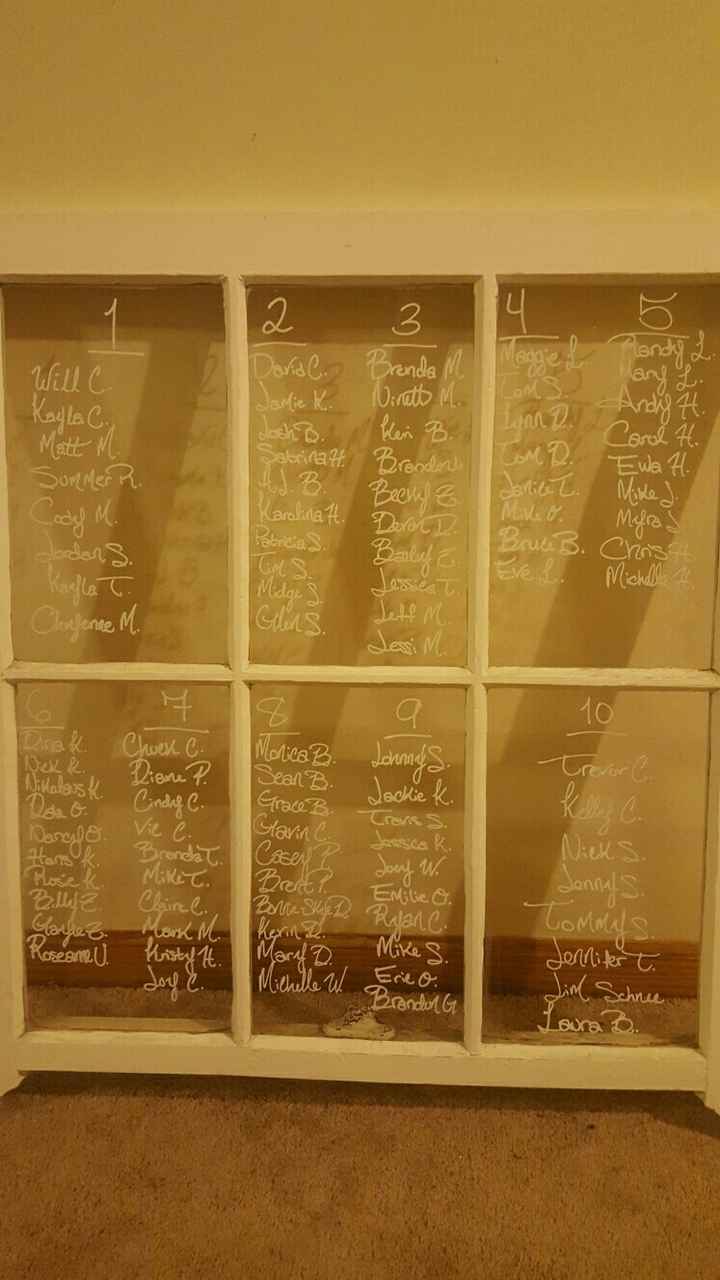 1
Will C.
Kayla C.
Matt M.
Summer R.
Cody M.
Jordan S.
Kayla T.
Cheyenne M.
2
David C.
Jamie K.
Josh B.
Sabrina H.
A.J. B.
Karolina H.
Patricia S.
Tim S.
Midge S.
Glen S.
3
Brenda M.
M.
Keri B.
Brandon
Becky Z.
Devon D.
Bailey Z.
Jessica T.
Jeff M.
Jessi M.
4
Maggie L.
Tom S.
Lynn D.
Tom D.
Janice T.
Mike O.
Bruce B.
Eve L.
5
Mandy L.
Mary L.
Andy H.
Carol H.
Ewa H.
Mike J.
Myra J.
Chris H.
Michelle H.
6
Dina K.
Nick K.
Nikolaus K.
O.
Darcy O.
Hans K.
Rosie K.
Billy Z.
Gayle Z.
Roseann U.
7
Chuck C.
Diane P.
Cindy C.
Vic C.
Brenda T.
Mike T.
Claire C.
Mark M.
Kristy H.
Joy C.
8
Monica B.
Sean B.
Grace B.
Gavin C.
Casey P.
Brent P.
Bonnie-Skye D.
Kevin D.
Mary D.
Michelle W.
9
Johnny S.
Jackie K.
Travis S.
Jessica K.
Joey W.
Emilie O.
Ryan C.
Mike S.
Eric O.
Brandon G.
10
Trevor C.
Kelly C.
Nick S.
Jenny S.
Tommy S.
Jennifer T.
Jim Schnee
Laura B.